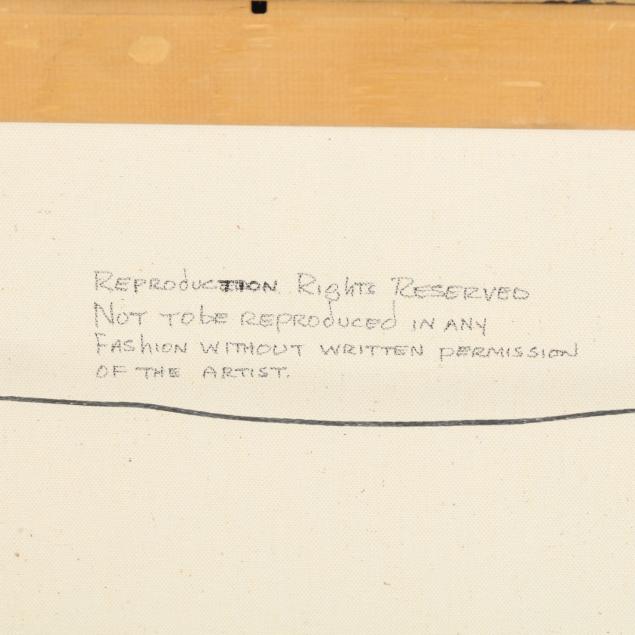 Reproduction Rights Reserved
Not tobe reproduced in any
Fashion without written permission
of the artist.